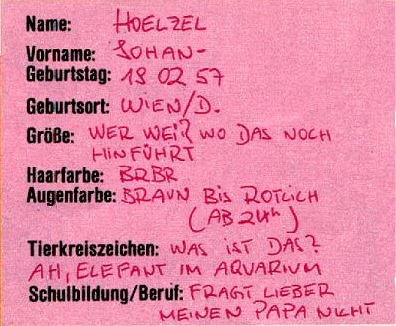 Name: HOELZEL
Vorname: JOHAN-
Geburtstag: 19 02 57
Geburtsort: WIEN/D.
Größe: WER WEIß WO DAS NOCH
HINFÜHRT
Haarfarbe: BRBR
Augenfarbe: BRAUN BIS RÖTLICH
(AB 24h)
Tierkreiszeichen: WAS IST DAS?
AH, ELEFANT IM AQUARIUM
Schulbildung/Beruf: FRAGT LIEBER
MEINEN PAPA NICHT